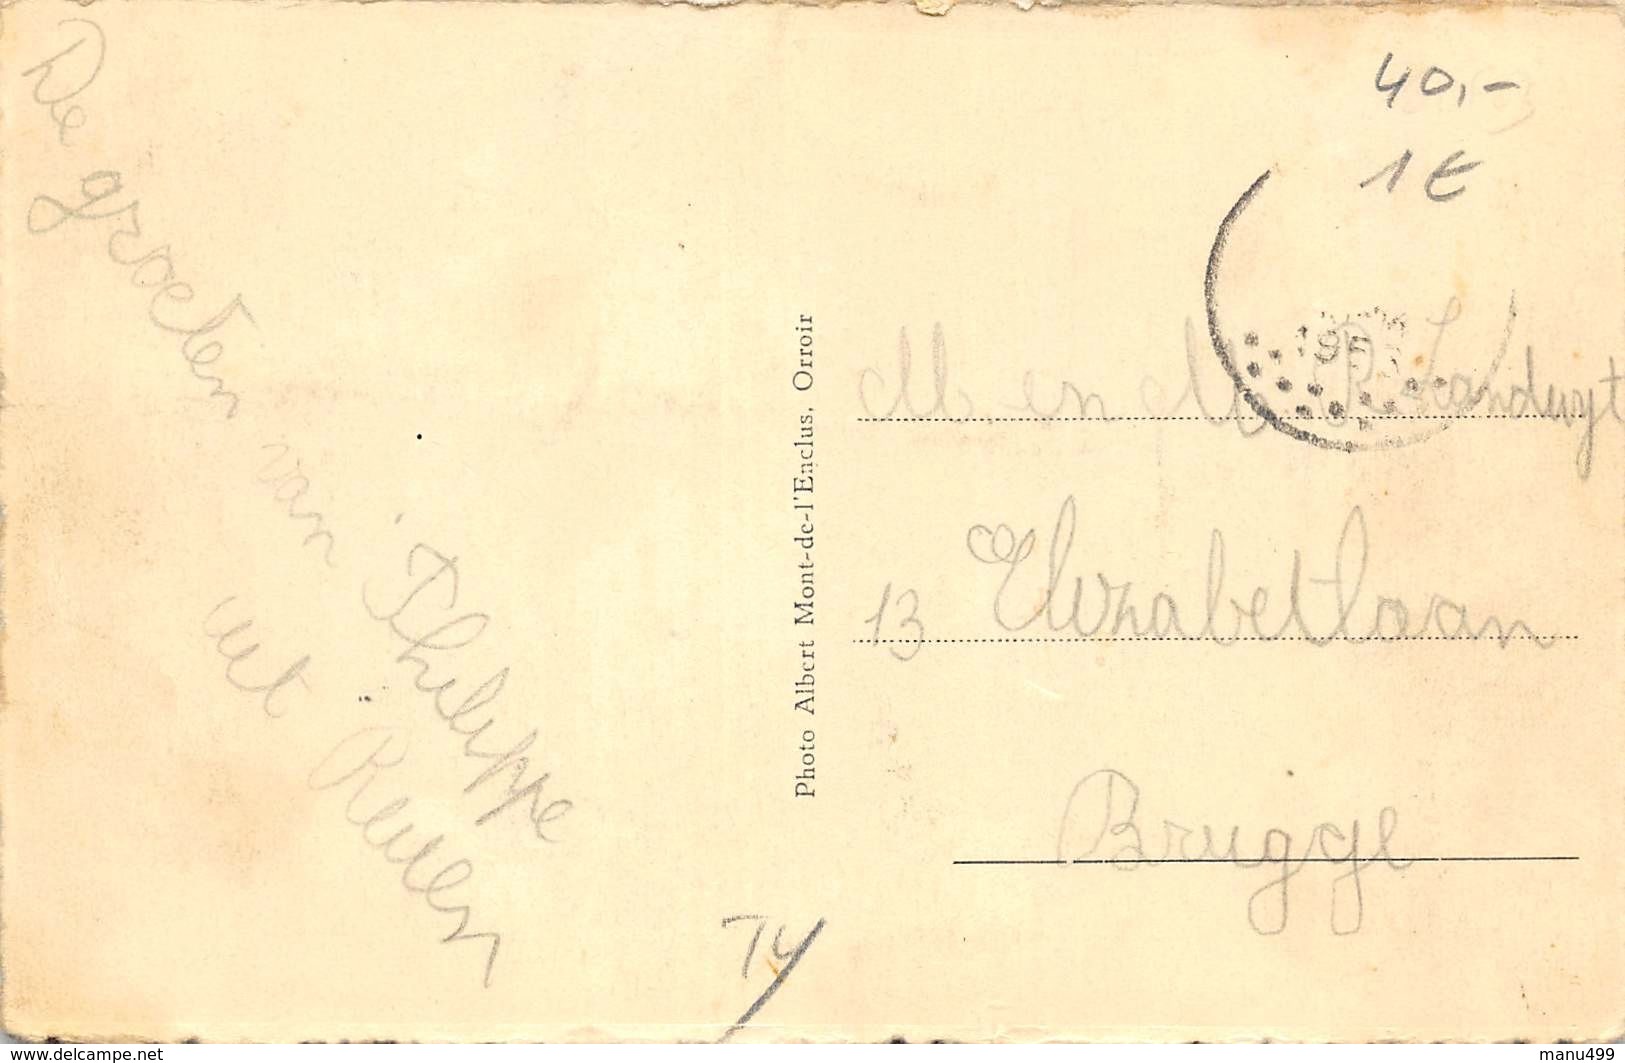 De groeten van Philippe
uit Reuen
Photo Albert Mont-de-l'Enclus, Orroir
40,-
1 €
195
M. en M. R. Landuyt
13 Elizabetlaan
Brugge
www.delcampe.net
manu499